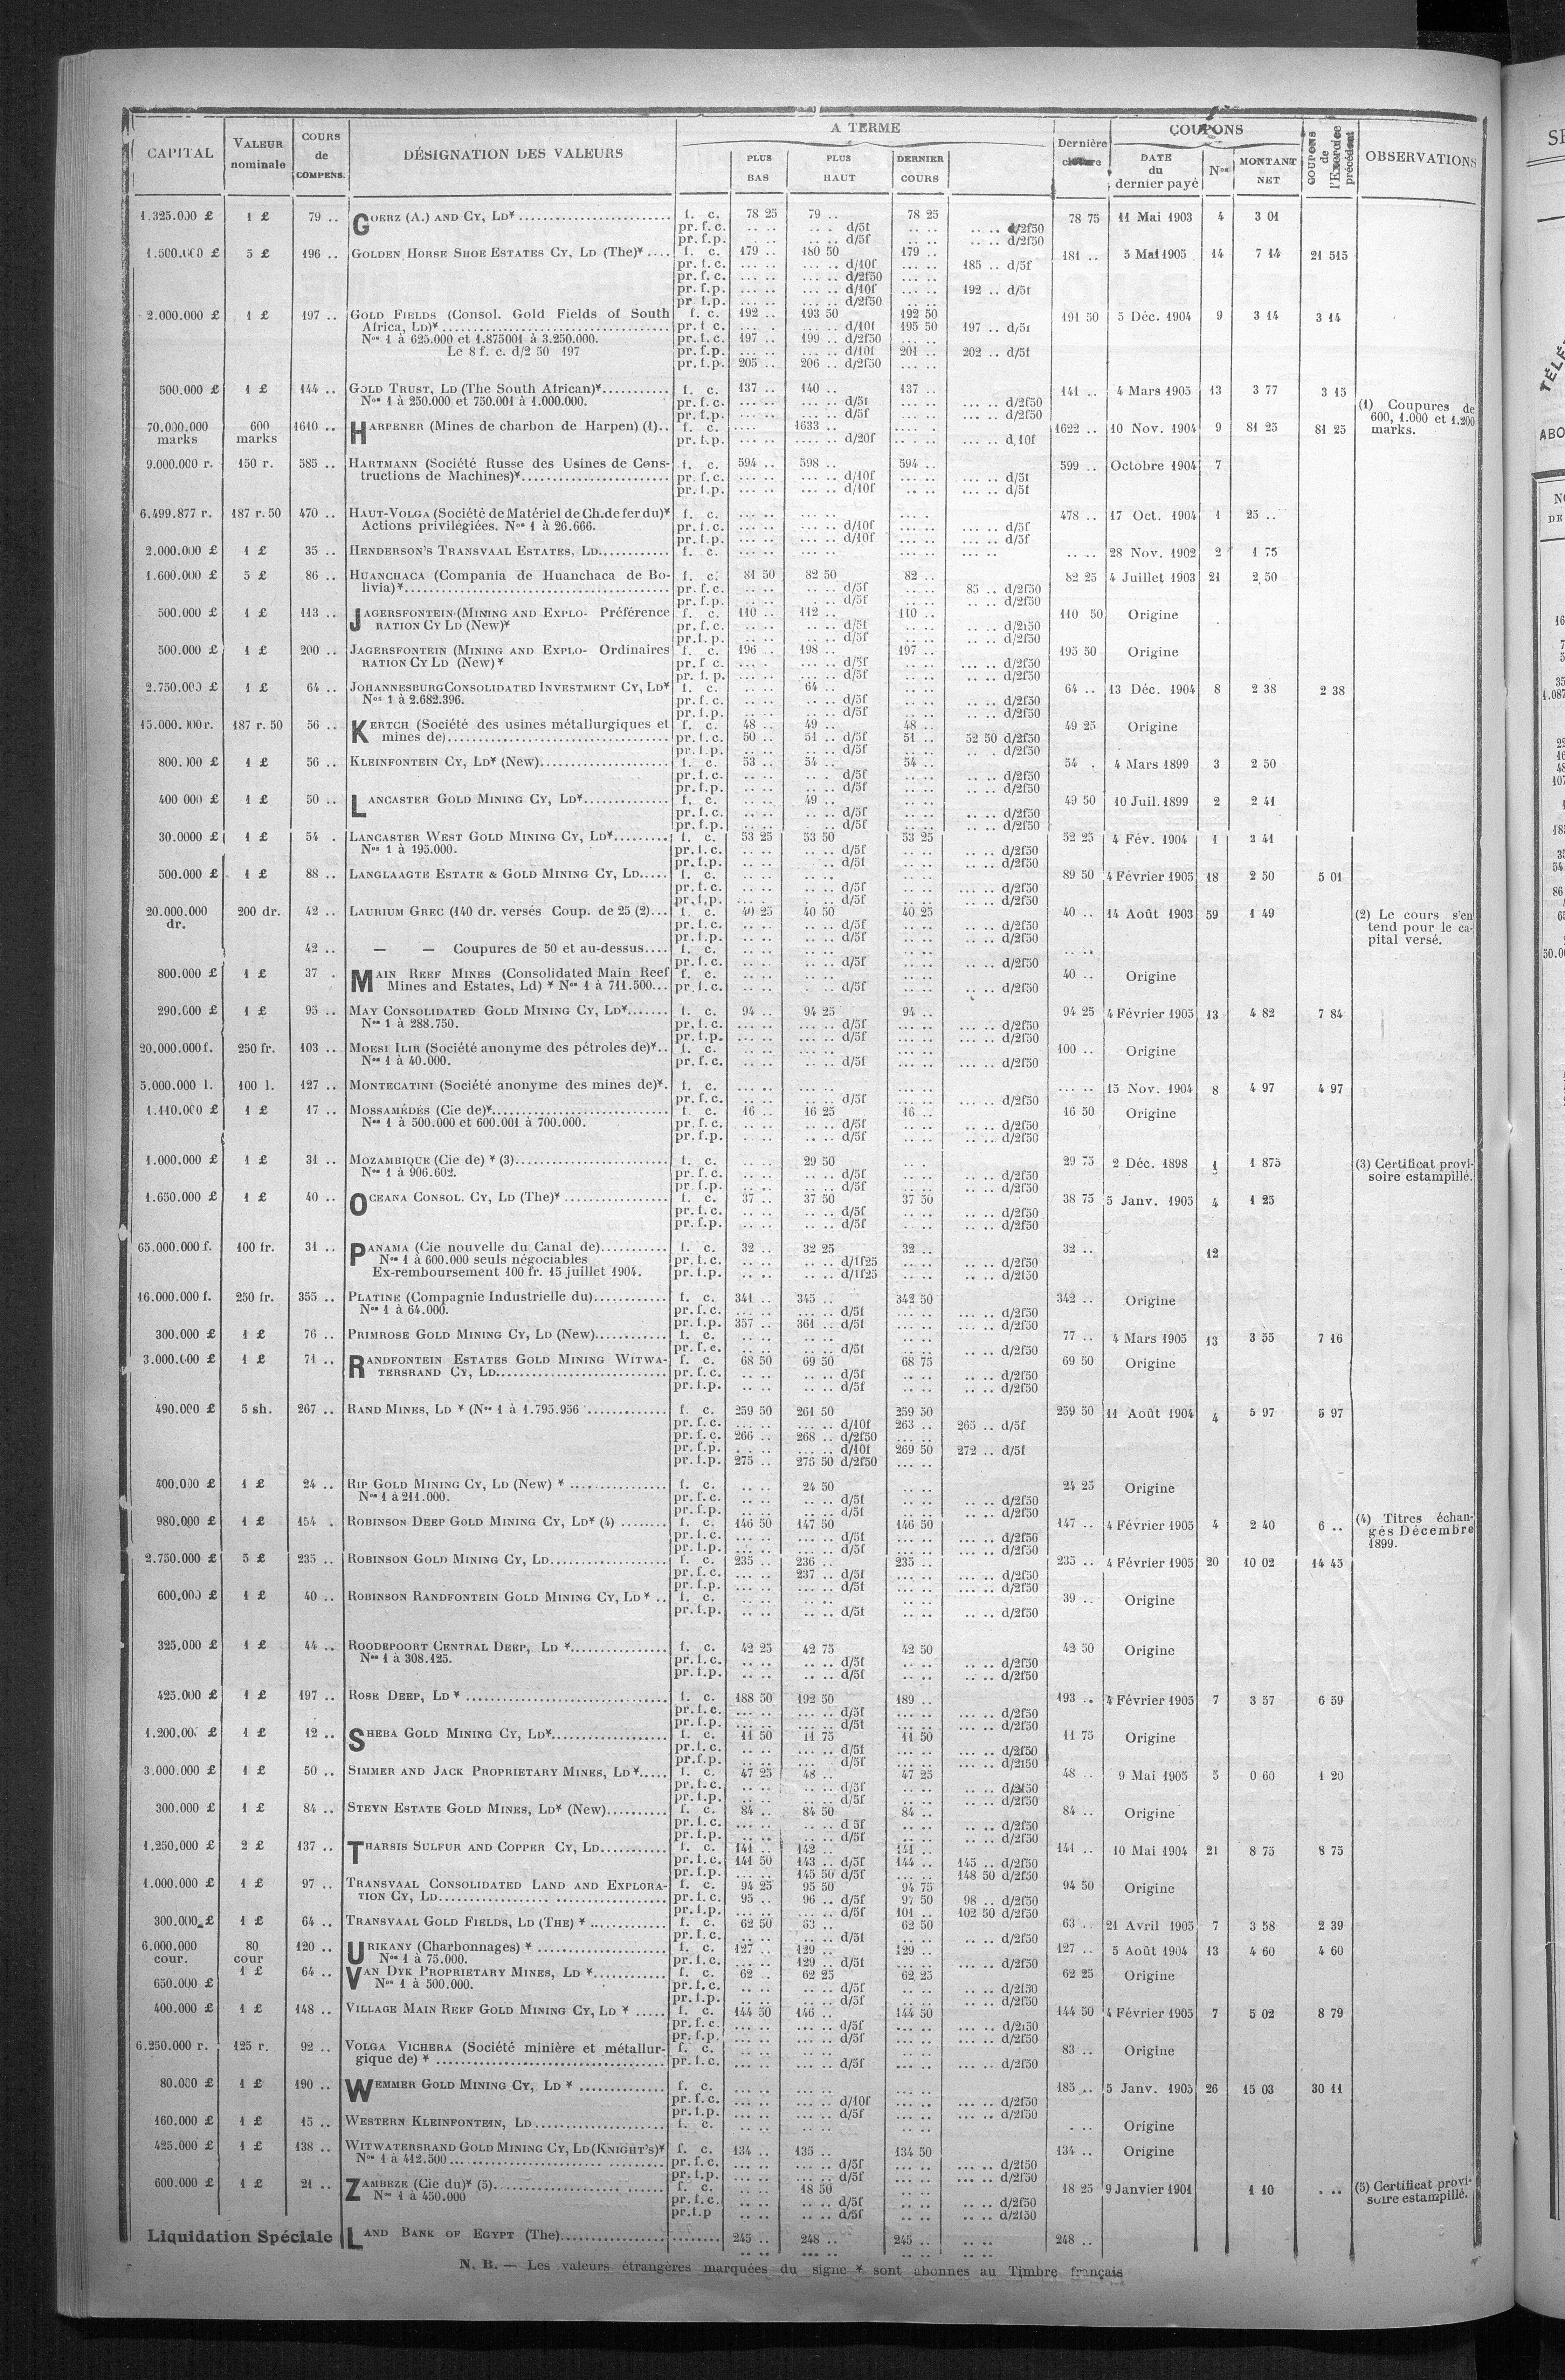 CAPITAL | VALEUR nominale | COURS de COMPENS. | DÉSIGNATION DES VALEURS | A TERME | PLUS BAS | PLUS HAUT | DERNIER COURS | Dernière | COUPONS | DATE du dernier payé | Nos | MONTANT NET | COUPONS de l'Exercice précédent | OBSERVATIONS
1.325.000 £ 1 £ 79 .. GOERZ (A.) AND CY, LD* f. c. 78 25 79 .. 78 25 78 75 11 Mai 1903 4 3 01
pr. f. c. d/5f d/2f50
pr. f. p. d/5f d/2f50
1.500.000 £ 5 £ 196 .. GOLDEN HORSE SHOE ESTATES CY, LD (The)* f. c. 179 .. 180 50 179 .. 181 .. 5 Mai 1905 14 7 14 21 515
pr. f. c. d/10f 185 .. d/5f
pr. f. c. d/2f50
pr. f. p. d/10f 192 .. d/5f
pr. f. p. d/2f50
2.000.000 £ 1 £ 197 .. GOLD FIELDS (Consol. Gold Fields of South f. c. 192 .. 193 50 192 50 191 50 5 Déc. 1904 9 3 14 3 14
Africa, LD)* pr. f. c. d/10f 195 50 197 .. d/5f
Nos 1 à 625.000 et 1.875001 à 3.250.000. pr. f. c. 197 .. 199 .. d/2f50
Le 8 f. c. d/2 50 197 pr. f. p. d/10f 201 .. 202 .. d/5f
pr. f. p. 205 .. 206 .. d/2f50
500.000 £ 1 £ 144 .. GOLD TRUST, LD (The South African)* f. c. 137 .. 140 .. 137 .. 141 .. 4 Mars 1905 13 3 77 3 15
Nos 1 à 250.000 et 750.001 à 1.000.000. pr. f. c. d/5f d/2f50 (1) Coupures de
pr. f. p. d/5f d/2f50 600, 1.000 et 1.200
70.000.000 600 1610 .. HARPENER (Mines de charbon de Harpen) (1).. f. c. 1633 .. 1622 .. 10 Nov. 1904 9 81 25 81 25 marks.
marks marks pr. f. p. d/20f d/10f
9.000.000 r. 150 r. 585 .. HARTMANN (Société Russe des Usines de Cons- f. c. 594 .. 598 .. 594 .. 599 .. Octobre 1904 7
tructions de Machines)* pr. f. c. d/10f d/5f
pr. f. p. d/10f d/5f
6.499.877 r. 187 r. 50 470 .. HAUT-VOLGA (Société de Matériel de Ch. de fer du)* f. c. 478 .. 17 Oct. 1904 1 25 ..
Actions privilégiées. Nos 1 à 26.666. pr. f. c. d/10f d/5f
pr. f. p. d/10f d/5f
2.000.000 £ 1 £ 35 .. HENDERSON'S TRANSVAAL ESTATES, LD f. c. 28 Nov. 1902 2 1 75
1.600.000 £ 5 £ 86 .. HUANCHACA (Compania de Huanchaca de Bo- f. c. 81 50 82 50 82 .. 82 25 4 Juillet 1903 21 2 50
livia)* pr. f. c. d/5f 85 .. d/2f50
pr. f. p. d/5f d/2f50
500.000 £ 1 £ 113 .. JAGERSFONTEIN (MINING AND EXPLO- Préférence f. c. 110 .. 112 .. 110 .. 110 50 Origine
RATION CY LD (New)* pr. f. c. d/5f d/2f50
pr. f. p. d/5f d/2f50
500.000 £ 1 £ 200 .. JAGERSFONTEIN (MINING AND EXPLO- Ordinaires f. c. 196 .. 198 .. 197 .. 195 50 Origine
RATION CY LD (New)* pr. f. c. d/5f d/2f50
pr. f. p. d/5f d/2f50
2.750.000 £ 1 £ 64 .. JOHANNESBURG CONSOLIDATED INVESTMENT CY, LD* f. c. 64 .. 64 .. 13 Déc. 1904 8 2 38 2 38
Nos 1 à 2.682.396. pr. f. c. d/5f d/2f50
pr. f. p. d/5f d/2f50
15.000.000 r. 187 r. 50 56 .. KERTCH (Société des usines métallurgiques et f. c. 48 .. 49 .. 48 .. 49 25 Origine
mines de) pr. f. c. 50 .. 51 .. d/5f 51 .. 52 50 d/2f50
pr. f. p. d/5f d/2f50
800.000 £ 1 £ 56 .. KLEINFONTEIN CY, LD* (New) f. c. 53 .. 54 .. 54 .. 54 . 4 Mars 1899 3 2 50
pr. f. c. d/5f d/2f50
pr. f. p. d/5f d/2f50
400 000 £ 1 £ 50 .. LANCASTER GOLD MINING CY, LD* f. c. 49 .. 49 50 10 Juil. 1899 2 2 41
pr. f. c. d/5f d/2f50
pr. f. p. d/5f d/2f50
30.0000 £ 1 £ 54 . LANCASTER WEST GOLD MINING CY, LD* f. c. 53 25 53 50 53 25 52 25 4 Fév. 1904 1 2 41
Nos 1 à 195.000. pr. f. c. d/5f d/2f50
pr. f. p. d/5f d/2f50
500.000 £ 1 £ 88 .. LANGLAAGTE ESTATE & GOLD MINING CY, LD f. c. 89 50 4 Février 1905 18 2 50 5 01
pr. f. c. d/5f d/2f50
pr. f. p. d/5f d/2f50
20.000.000 200 dr. 42 .. LAURIUM GREC (140 dr. versés Coup. de 25 (2) f. c. 40 25 40 50 40 25 40 .. 14 Août 1903 59 1 49 (2) Le cours s'en
dr. pr. f. c. d/5f d/2f50 tend pour le ca-
pr. f. p. d/5f d/2f50 pital versé.
42 .. — — Coupures de 50 et au-dessus f. c.
pr. f. c. d/5f d/2f50
800.000 £ 1 £ 37 . MAIN REEF MINES (Consolidated Main Reef f. c. 40 .. Origine
Mines and Estates, Ld) * Nos 1 à 711.500 pr. f. c. d/5f d/2f50
290.000 £ 1 £ 95 .. MAY CONSOLIDATED GOLD MINING CY, LD* f. c. 94 .. 94 25 94 .. 94 25 4 Février 1905 13 4 82 7 84
Nos 1 à 288.750. pr. f. c. d/5f d/2f50
pr. f. p. d/5f d/2f50
20.000.000 f. 250 fr. 103 .. MOESI ILIR (Société anonyme des pétroles de)* f. c. 100 .. Origine
Nos 1 à 40.000. pr. f. c. d/5f d/2f50
5.000.000 l. 100 l. 127 .. MONTECATINI (Société anonyme des mines de)* f. c. 15 Nov. 1904 8 4 97 4 97
pr. f. c. d/5f d/2f50
1.110.000 £ 1 £ 17 .. MOSSAMÉDÈS (Cie de)* f. c. 16 .. 16 25 16 .. 16 50 Origine
Nos 1 à 500.000 et 600.001 à 700.000. pr. f. c. d/5f d/2f50
pr. f. p. d/5f d/2f50
1.000.000 £ 1 £ 31 .. MOZAMBIQUE (Cie de) * (3) f. c. 29 50 29 75 2 Déc. 1898 1 1 875 (3) Certificat provi-
Nos 1 à 906.602. pr. f. c. d/5f d/2f50 soire estampillé.
pr. f. p. d/5f d/2f50
1.650.000 £ 1 £ 40 .. OCEANA CONSOL. CY, LD (The)* f. c. 37 .. 37 50 37 50 38 75 5 Janv. 1905 4 1 25
pr. f. c. d/5f d/2f50
pr. f. p. d/5f d/2f50
65.000.000 f. 100 fr. 31 .. PANAMA (Cie nouvelle du Canal de) f. c. 32 .. 32 25 32 .. 32 .. 12
Nos 1 à 600.000 seuls négociables pr. f. c. d/1f25 d/2f50
Ex-remboursement 100 fr. 15 juillet 1904. pr. f. p. d/1f25 d/2f50
16.000.000 f. 250 fr. 355 .. PLATINE (Compagnie Industrielle du) f. c. 341 .. 345 .. 342 50 342 .. Origine
Nos 1 à 64.000. pr. f. c. d/5f d/2f50
pr. f. p. 357 .. 361 .. d/5f d/2f50
300.000 £ 1 £ 76 .. PRIMROSE GOLD MINING CY, LD (New) f. c. 77 .. 4 Mars 1905 13 3 55 7 16
pr. f. c. d/5f d/2f50
3.000.000 £ 1 £ 71 .. RANDFONTEIN ESTATES GOLD MINING WITWA- f. c. 68 50 69 50 68 75 69 50 Origine
TERSRAND CY, LD pr. f. c. d/5f d/2f50
pr. f. p. d/5f d/2f50
490.000 £ 5 sh. 267 .. RAND MINES, LD * (Nos 1 à 1.795.956 f. c. 259 50 261 50 259 50 259 50 11 Août 1904 4 5 97 5 97
pr. f. c. d/10f 263 .. 265 .. d/5f
pr. f. c. 266 .. 268 .. d/2f50
pr. f. p. d/10f 269 50 272 .. d/5f
pr. f. p. 275 .. 275 50 d/2f50
400.000 £ 1 £ 24 .. RIP GOLD MINING CY, LD (New) * f. c. 24 50 24 25 Origine
Nos 1 à 211.000. pr. f. c. d/5f d/2f50
pr. f. p. d/5f d/2f50
980.000 £ 1 £ 154 . ROBINSON DEEP GOLD MINING CY, LD* (4) f. c. 146 50 147 50 146 50 147 .. 4 Février 1905 4 2 40 6 .. (4) Titres échan-
pr. f. c. d/5f d/2f56 gés Décembre
pr. f. p. d/5f d/2f50 1899.
2.750.000 £ 5 £ 235 .. ROBINSON GOLD MINING CY, LD f. c. 235 .. 236 .. 235 .. 235 .. 4 Février 1905 20 10 02 14 45
pr. f. c. 237 .. d/5f d/2f50
pr. f. p. d/5f d/2f50
600.000 £ 1 £ 40 .. ROBINSON RANDFONTEIN GOLD MINING CY, LD* f. c. 39 .. Origine
pr. f. p. d/5f d/2f50
325.000 £ 1 £ 44 .. ROODEPOORT CENTRAL DEEP, LD * f. c. 42 25 42 75 42 50 42 50 Origine
Nos 1 à 308.125. pr. f. c. d/5f d/2f50
pr. f. p. d/5f d/2f50
425.000 £ 1 £ 197 .. ROSE DEEP, LD * f. c. 188 50 192 50 189 .. 193 .. 4 Février 1905 7 3 57 6 59
pr. f. c. d/5f d/2f50
pr. f. p. d/5f d/2f50
1.200.00 £ 1 £ 12 .. SHEBA GOLD MINING CY, LD* f. c. 11 50 11 75 11 50 11 75 Origine
pr. f. c. d/5f d/2f50
pr. f. p. d/5f d/2f50
3.000.000 £ 1 £ 50 .. SIMMER AND JACK PROPRIETARY MINES, LD* f. c. 47 25 48 .. 47 25 48 .. 9 Mai 1905 5 0 60 1 20
pr. f. c. d/5f d/2f50
pr. f. p. d/5f d/2f50
300.000 £ 1 £ 84 .. STEYN ESTATE GOLD MINES, LD* (New) f. c. 84 .. 84 50 84 .. 84 .. Origine
pr. f. c. d 5f d/2f50
pr. f. p. d/5f d/2f50
1.250.000 £ 2 £ 137 .. THARSIS SULFUR AND COPPER CY, LD f. c. 141 .. 142 .. 141 .. 141 .. 10 Mai 1904 21 8 75 8 75
pr. f. c. 141 50 143 .. d/5f 144 .. 145 .. d/2f50
pr. f. p. 145 50 d/5f 148 50 d/2f50
1.000.000 £ 1 £ 97 .. TRANSVAAL CONSOLIDATED LAND AND EXPLORA- f. c. 94 25 95 50 94 75 94 50 Origine
TION CY, LD pr. f. c. 95 .. 96 .. d/5f 97 50 98 .. d/2f50
pr. f. p. d/5f 101 .. 102 50 d/2f50
300.000 £ 1 £ 64 .. TRANSVAAL GOLD FIELDS, LD (THE) * f. c. 62 50 63 .. 62 50 63 .. 21 Avril 1905 7 3 58 2 39
pr. f. c. d/5f d/2f50
6.000.000 80 120 .. URIKANY (Charbonnages) * f. c. 127 .. 129 .. 129 .. 127 .. 5 Août 1904 13 4 60 4 60
cour. cour Nos 1 à 75.000. pr. f. c. 129 .. d/5f d/2f50
650.000 £ 1 £ 64 .. VAN DYK PROPRIETARY MINES, LD * f. c. 62 .. 62 25 62 25 62 25 Origine
Nos 1 à 500.000. pr. f. c. d/5f d/2f50
pr. f. p. d/5f d/2f50
400.000 £ 1 £ 148 .. VILLAGE MAIN REEF GOLD MINING CY, LD * f. c. 144 50 146 .. 144 50 144 50 4 Février 1905 7 5 02 8 79
pr. f. c. d/5f d/2f50
pr. f. p. d/5f d/2f50
6.250.000 r. 125 r. 92 .. VOLGA VICHERA (Société minière et métallur- f. c. 83 .. Origine
gique de) * pr. f. c. d/5f d/2f50
80.000 £ 1 £ 190 .. WEMMER GOLD MINING CY, LD * f. c. 185 .. 5 Janv. 1905 26 15 03 30 11
pr. f. c. d/10f d/2f50
pr. f. p. d/5f d/2f50
160.000 £ 1 £ 15 .. WESTERN KLEINFONTEIN, LD f. c. Origine
425.000 £ 1 £ 138 .. WITWATERSRAND GOLD MINING CY, LD (KNIGHT'S)* f. c. 134 .. 135 .. 134 50 134 .. Origine
Nos 1 à 412.500 pr. f. c. d/5f d/2f50
pr. f. p. d/5f d/2f50
600.000 £ 1 £ 21 .. ZAMBEZE (Cie du)* (5) f. c. 18 50 18 25 9 Janvier 1901 1 10 (5) Certificat provi-
Nos 1 à 450.000 pr. f. c. d/5f d/2f50 soire estampillé.
pr. f. p d/5f d/2f50
Liquidation Spéciale LAND BANK OF EGYPT (The) 245 .. 248 .. 245 .. 248 ..
N. B. — Les valeurs étrangères marquées du signe * sont abonnes au Timbre français